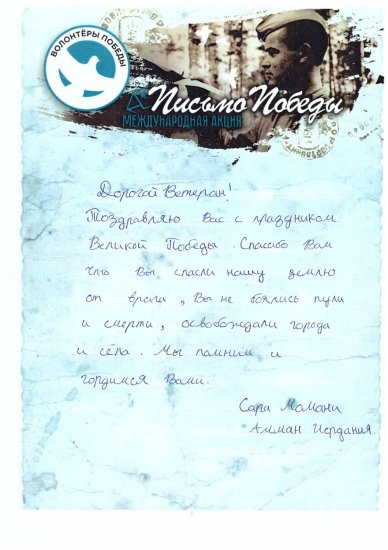 ВОЛОНТЁРЫ ПОБЕДЫ
Письмо Победы
МЕЖДУНАРОДНАЯ АКЦИЯ
Дорогой Ветеран!
Поздравляю Вас с праздником
Великой Победы. Спасибо Вам
что Вы спасли нашу землю
от врага, Вы не боялись пули
и смерти, освобождали города
и сёла. Мы помним и
гордимся Вами.
Сара Момани
Амман Иордания.